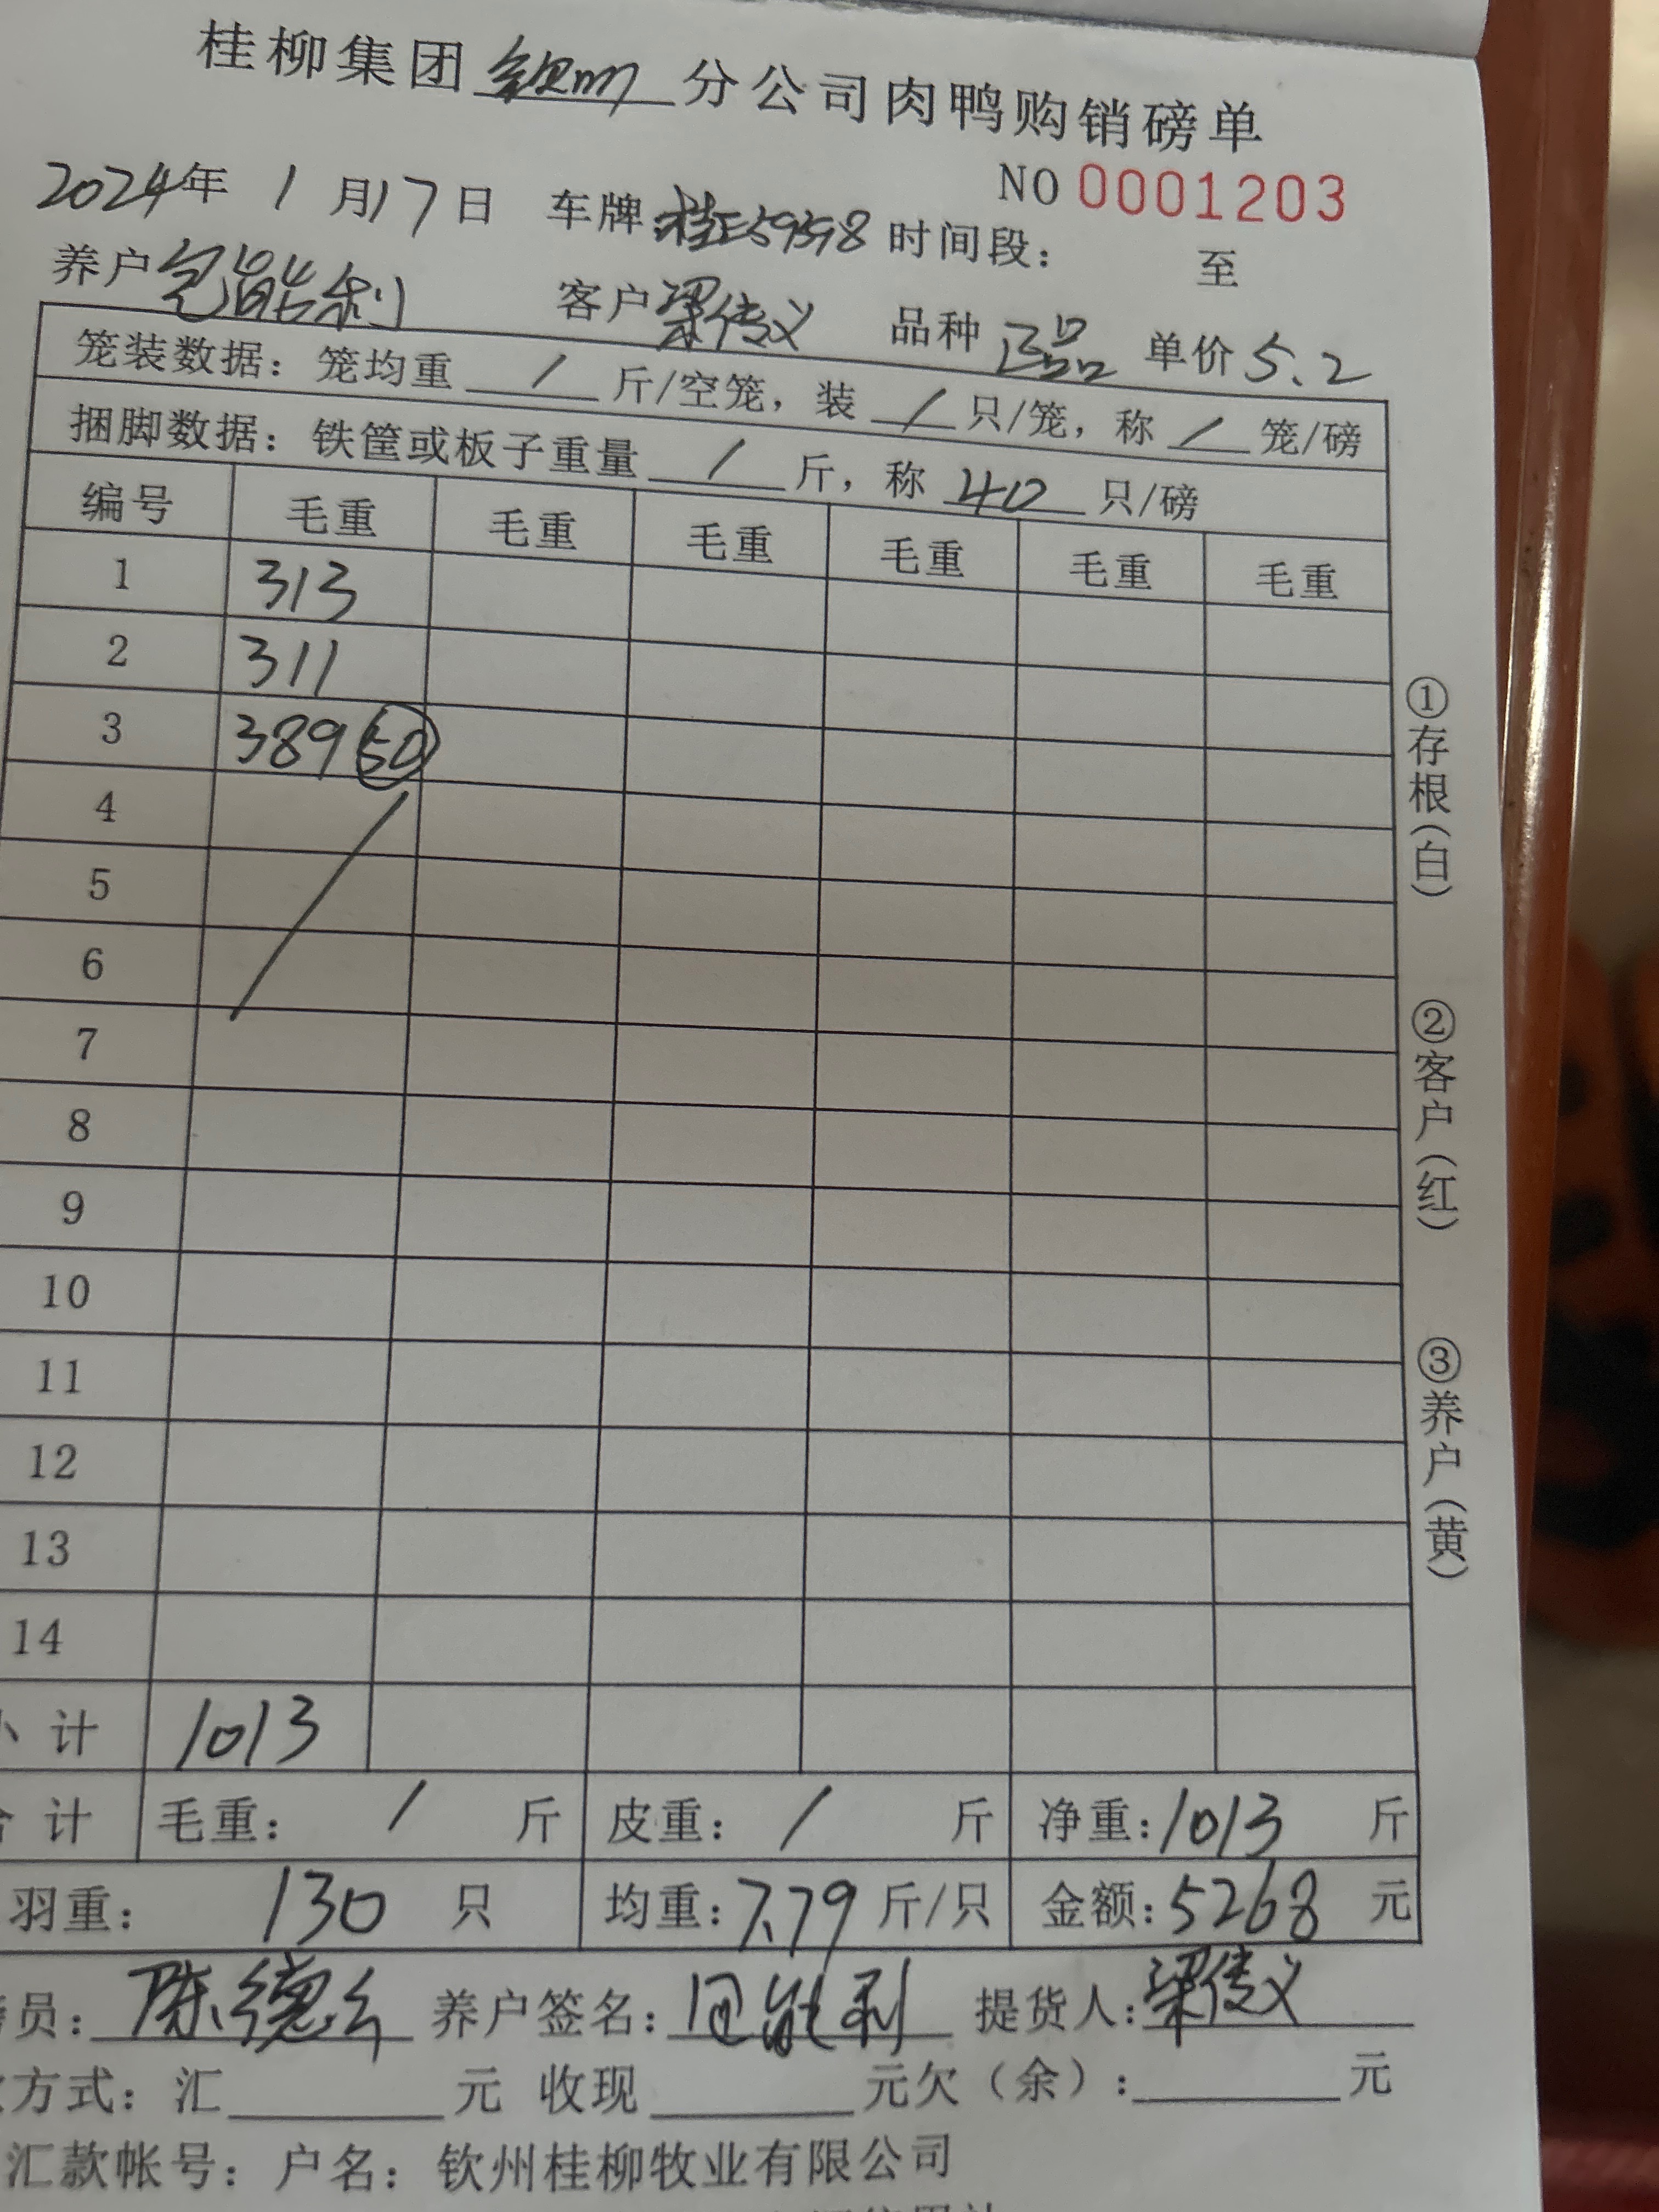 桂柳集团钦州分公司肉鸭购销磅单
NO 0001203
2024年 1 月17日 车牌:桂E59598 时间段: 至
养户包能利 客户梁传义 品种 正品 单价5.2
笼装数据: 笼均重 / 斤/空笼, 装 / 只/笼, 称 / 笼/磅
捆脚数据: 铁筐或板子重量 / 斤, 称 40 只/磅
编号 毛重 毛重 毛重 毛重 毛重 毛重
1 313
2 311
3 389 50
4
5
6
7
8
9
10
11
12
13
14
小 计 1013
合 计 毛重: / 斤 皮重: / 斤 净重:1013 斤
羽重: 130 只 均重:7.79 斤/只 金额:5268 元
员: 陈德 养户签名: 能利 提货人:梁传义
方式: 汇 元 收现 元欠(余): 元
汇款帐号: 户名: 钦州桂柳牧业有限公司
①存根(白) ②客户(红) ③养户(黄)